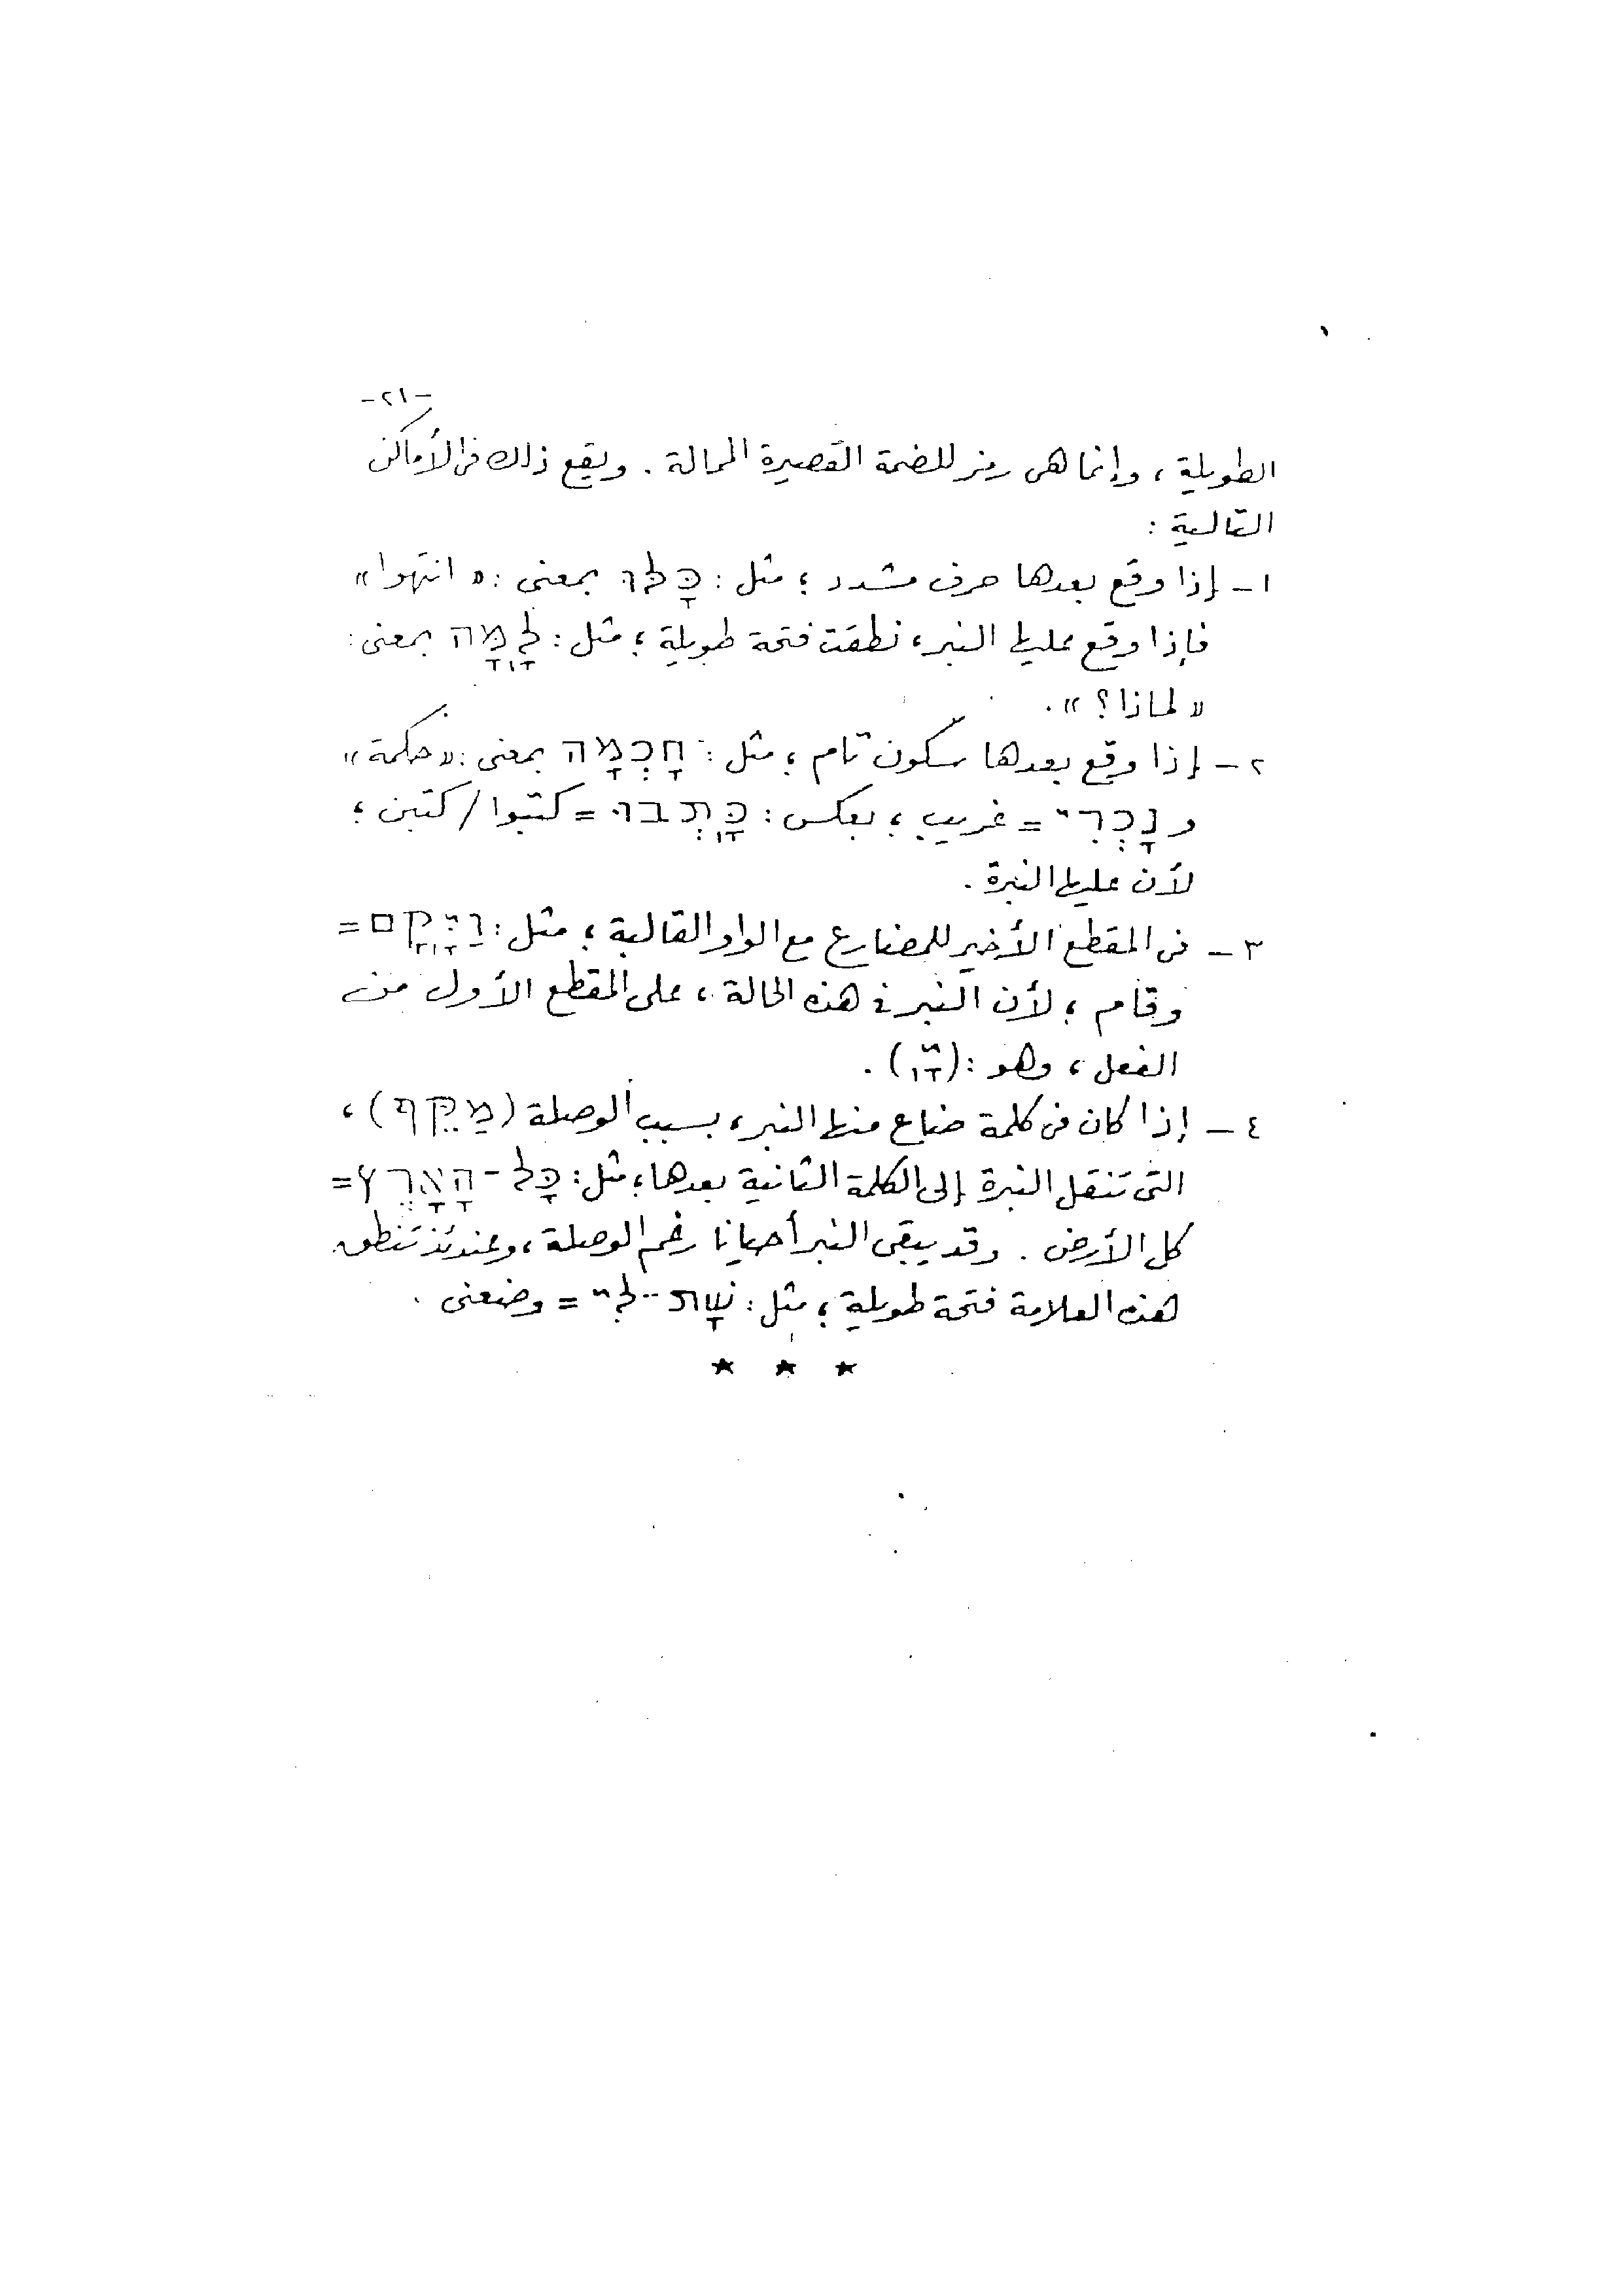 -٢١-
الطويلة ، وإنما هى رمز للضمة القصيرة الممالة . ويقع ذلك فى الأماكن
التالية :
١ - إذا وقع بعدها حرف مشدد ؛ مثل : כָּלּוּ بمعنى : « انتهوا »
فإذا وقع عليها النبر ، نطقت فتحة طويلة ؛ مثل : לָֽמָּה بمعنى :
« لماذا ؟ » .
٢ - إذا وقع بعدها سكون تام ؛ مثل : חָכְמָה بمعنى : « حكمة »
و נָכְרִי = غريب ؛ بعكس : כָּֽתְבוּ = كتبوا / كتبن ؛
لأن عليها النبرة .
٣ - فى المقطع الأخير للمضارع مع الواو القالبة ؛ مثل : וַיָּֽקָם =
وقام ؛ لأن النبر فى هذه الحالة ، على المقطع الأول من
الفعل ، وهو : (יָּֽ) .
٤ - إذا كان فى كلمة ضاع منها النبر ، بسبب الوصلة (מַקֵּף) ،
التى تنقل النبرة إلى الكلمة الثانية بعدها ؛ مثل : כָּל־הָאָרֶץ =
كل الأرض . وقد يبقى النبر أحيانا رغم الوصلة ، وعندئذ تنطق
هذه العلامة فتحة طويلة ؛ مثل : שָׁת־לִי = وضعنى .
★ ★ ★